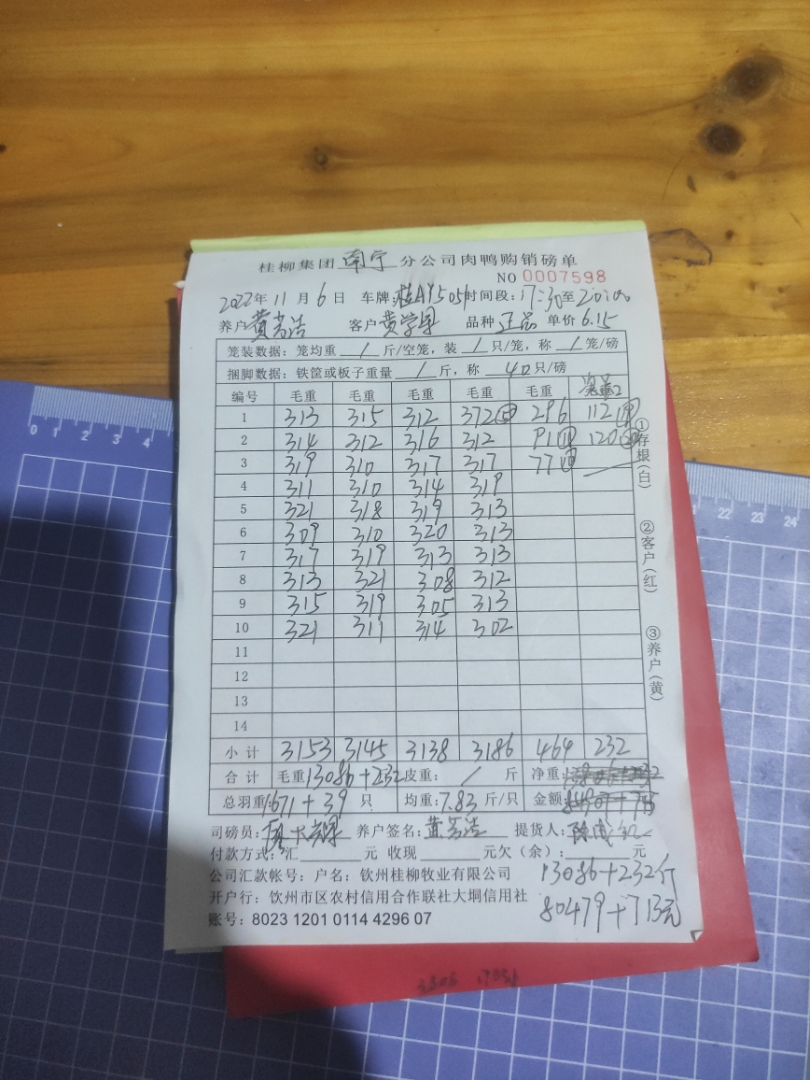 桂柳集团 南宁 分公司肉鸭购销磅单
NO 0007598
2022年 11 月 6 日 车牌: 时间段: 17:30至20:00
养户 黄芳浩 客户 品种 正品 单价 6.15
笼装数据: 笼均重 / 斤/空笼, 装 / 只/笼, 称 / 笼/磅
捆脚数据: 铁筐或板子重量 / 斤, 称 40 只/磅
编号 毛重 毛重 毛重 毛重 毛重
1 313 315 312 372 296 112
2 314 312 316 312 91 120
3 319 310 317 317 77
4 311 310 314 319
5 321 318 319 313
6 309 310 320 313
7 317 319 313 313
8 313 321 308 312
9 315 319 305 313
10 321 311 314 302
11
12
13
14
小计 3153 3145 3138 3186 464 232
合计 毛重 13086+232 皮重: / 斤 净重:
总羽重 1671+39 只 均重: 7.83 斤/只 金额:
司磅员: 养户签名: 黄芳浩 提货人:
付款方式: 汇 元 收现 元欠(余): 元
公司汇款帐号: 户名: 钦州桂柳牧业有限公司
13086+232斤
开户行: 钦州市区农村信用合作联社大垌信用社
80479+713元
账号: 8023 1201 0114 4296 07
①存根(白)
②客户(红)
③养户(黄)
0 1 2
22 23 24